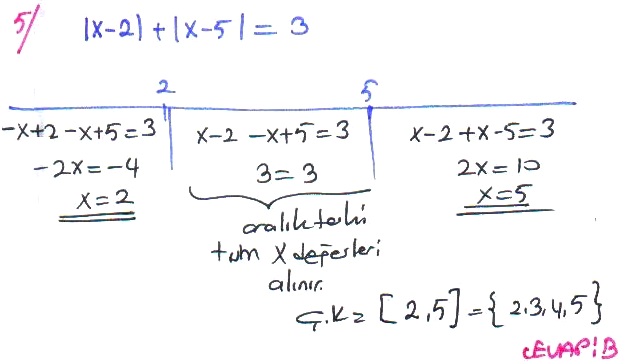 5/ |x-2| + |x-5| = 3
2 5
-x+2-x+5=3 x-2-x+5=3 x-2+x-5=3
-2x=-4 3=3 2x=10
x=2 x=5
aralıktaki
tüm x değerleri
alınır.
Ç.K= [2,5] = {2,3,4,5}
CEVAP:B